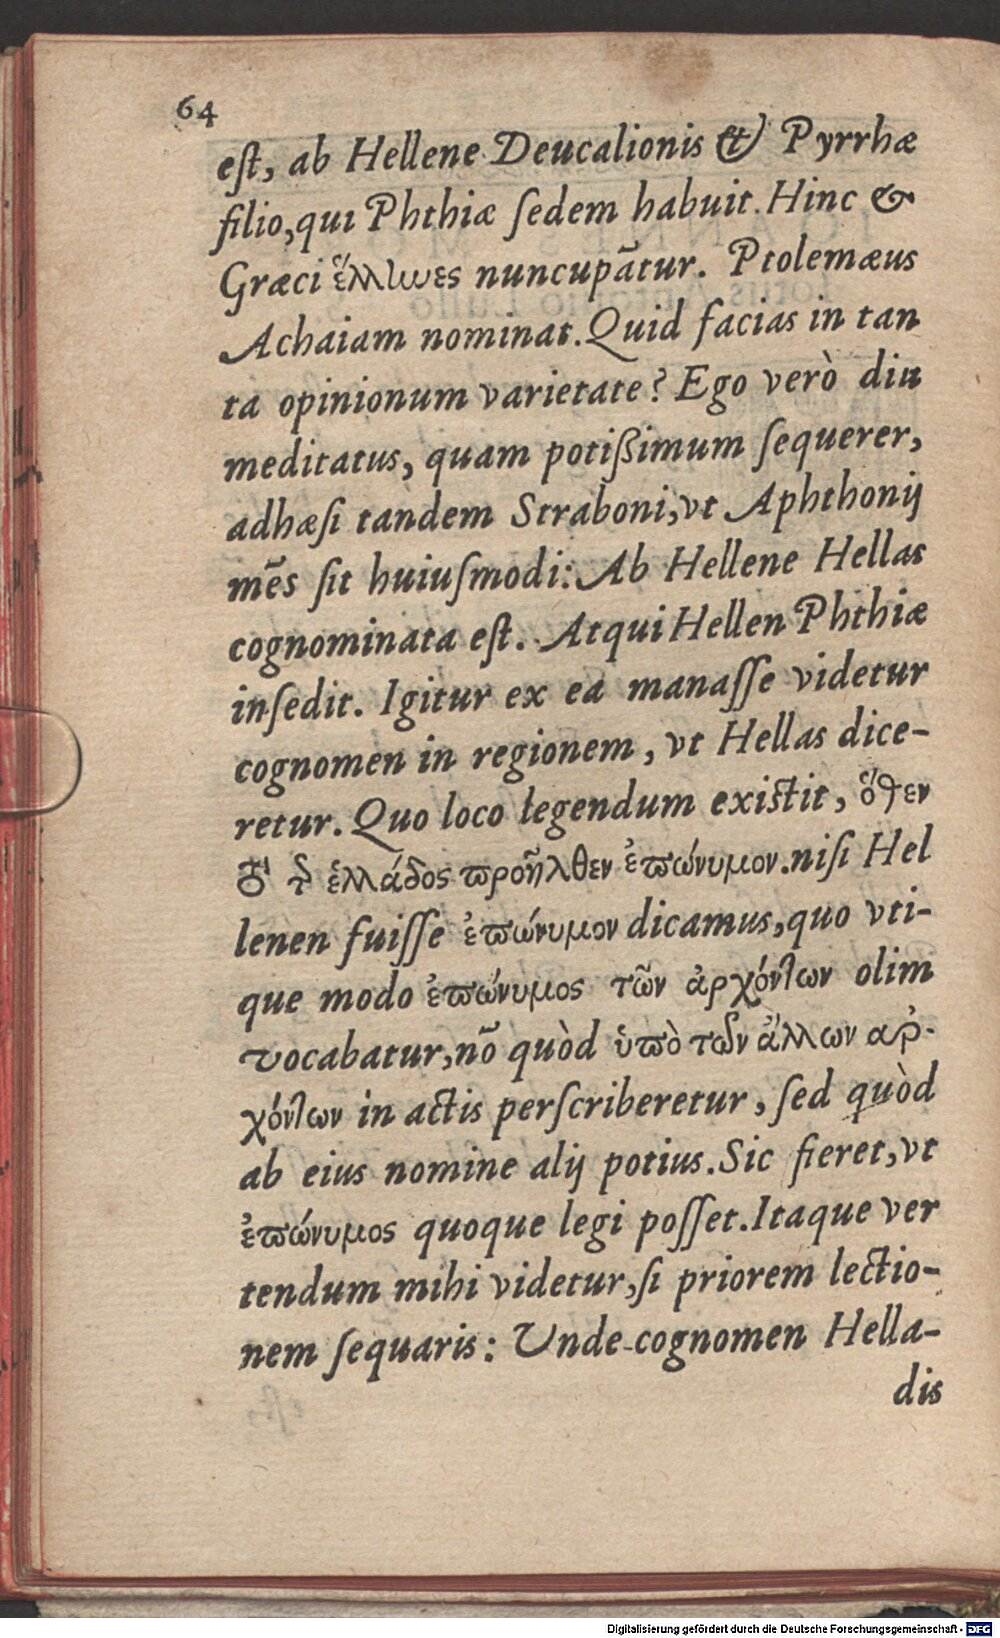 64
eſt, ab Hellene Deucalionis & Pyrrhæ
filio,qui Phthiæ ſedem habuit. Hinc &
Græci ἕλληνες nuncupãtur. Ptolemæus
Achaiam nominat. Quid facias in tan
ta opinionum varietate? Ego verò diu
meditatus, quam potißimum ſequerer,
adhæſi tandem Straboni,vt Aphthonij
mẽs ſit huiuſmodi: Ab Hellene Hellas
cognominata eſt. Atqui Hellen Phthiæ
inſedit. Igitur ex ea manaſſe videtur
cognomen in regionem, vt Hellas dice-
retur. Quo loco legendum existit, ὅθεν
τὸ τῆς ἑλλάδος προῆλθεν ἐπώνυμον.niſi Hel
lenen fuiſſe ἐπώνυμον dicamus,quo vti-
que modo ἐπώνυμος τῶν ἀρχόντων olim
vocabatur,nõ quòd ὑπὸ τῶν ἄλλων ἀρ-
χόντων in actis perſcriberetur, ſed quòd
ab eius nomine alij potius. Sic fieret,vt
ἐπώνυμος quoque legi poſſet.Itaque ver
tendum mihi videtur,ſi priorem lectio-
nem ſequaris: Vnde cognomen Hella-
dis
Digitalisierung gefördert durch die Deutsche Forschungsgemeinschaft - DFG